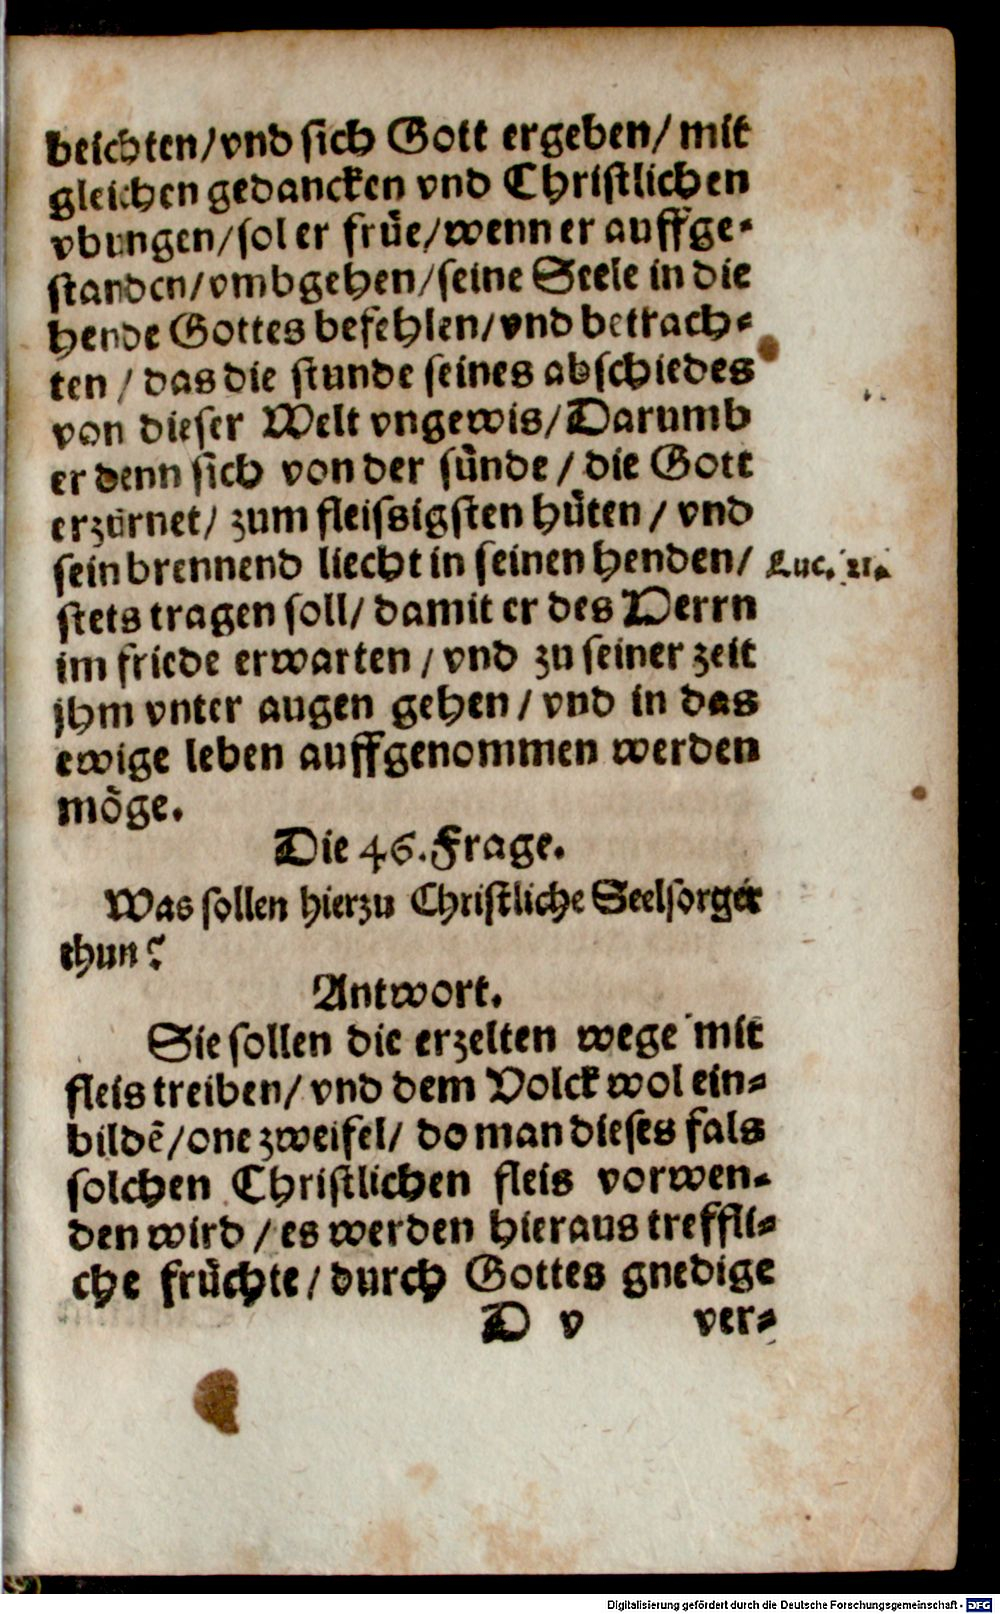 beichten/vnd sich Gott ergeben/mit
gleichen gedancken vnd Christlichen
vbungen/sol er früe/wenn er auffge-
standen/vmbgehen/seine Seele in die
hende Gottes befehlen/vnd betrach-
ten/das die stunde seines abschiedes
von dieser Welt vngewis/Darumb
er denn sich von der sünde/die Gott
erzürnet/zum fleissigsten hüten/vnd
sein brennend liecht in seinen henden/
stets tragen soll/damit er des Herrn
im friede erwarten/vnd zu seiner zeit
jhm vnter augen gehen/vnd in das
ewige leben auffgenommen werden
möge.
Luc.
Die 46. Frage.
Was sollen hierzu Christliche Seelsorger
thun?
Antwort.
Sie sollen die erzelten wege mit
fleis treiben/vnd dem Volck wol ein-
bildē/one zweifel/do man dieses fals
solchen Christlichen fleis vorwen-
den wird/es werden hieraus treffli-
che früchte/durch Gottes gnedige
D v ver-
Digitalisierung gefördert durch die Deutsche Forschungsgemeinschaft - DFG